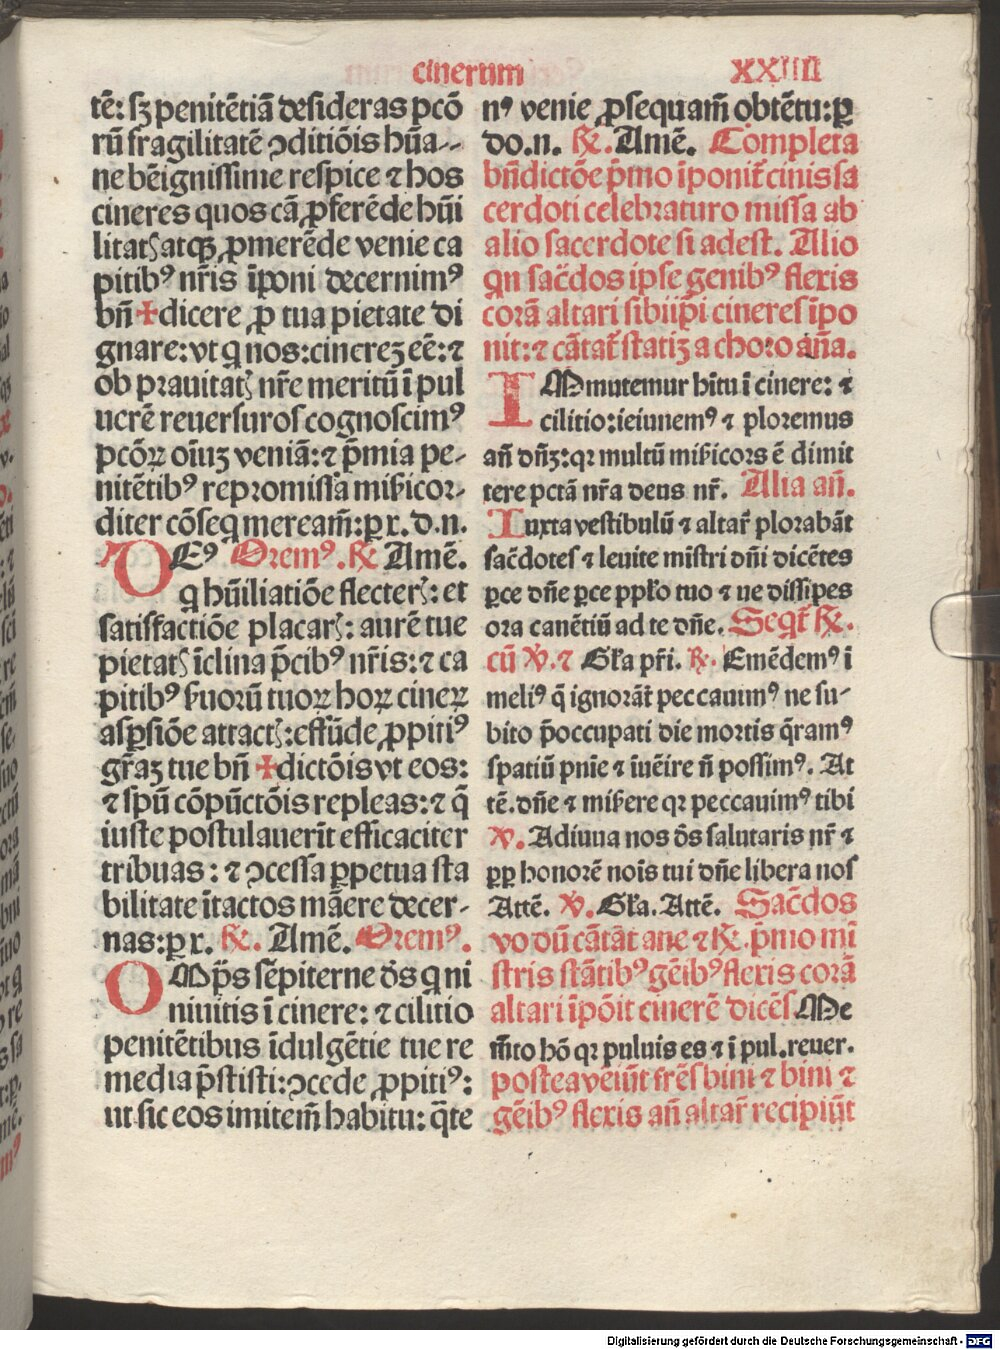 cinerum XXIIII
tē: sꝫ penitētiā desideras pcō
rū fragilitatē ↄditiōis hūa--
ne bēignissime respice ⁊ hos
cineres quos cā ꝓferēde hūi
litatꝭ atqꝫ ꝓmerēde venie ca
pitibꝰ nr̄is īponi decernimꝰ
bn̄ ✠ dicere ꝓ tua pietate di
gnare: vt q nos: cinereꝫ eē: ⁊
ob prauitatꝭ nr̄e meritū ī pul
uerē reuersuros cognoscimꝰ
pcōꝝ oīuꝫ veniā: ⁊ p̄mia pe-
nitētibꝰ repromissa mīsericor-
diter cōseq meream̄: ꝑ x. d. n.
DEꝰ Oremꝰ. ℞ Amē.
q hūiliatiōe flecterꝭ: et
satisfactiōe placarꝭ: aurē tue
pietatꝭ īclina p̄cibꝰ nr̄is: ⁊ ca
pitibꝰ ẜuorū tuoꝝ hoꝝ cineꝝ
aspsiōe attactꝭ: effūde ꝓpitiꝰ
gr̄aꝫ tue bn̄ ✠ dictōis vt eos:
⁊ spū cōpūctōis repleas: ⁊ q̄
iuste postulauerīt efficaciter
tribuas: ⁊ ↄcessa ꝑpetua sta
bilitate ītactos māere decer-
nas: ꝑ x. ℞. Amē. Oremꝰ.
OMp̄s sēpiterne dō̄s q ni
niuitis ī cinere: ⁊ cilitio
penitētibus īdulgētie tue re
media p̄stisti: ↄcede ꝓpitiꝰ:
ut sic eos imitem̄ habitu: q̄te
nꝰ venie ꝓsequam̄ obtētu: ꝑ
do. n. ℞. Amē. Completa
bn̄dictōe p̄mo īponit̄ cinis sa
cerdoti celebraturo missa ab
alio sacerdote si adest. Alio
qn sac̄dos ipse genibꝰ flexis
corā altari sibiip̄i cineres īpo
nit: ⁊ cātat̄ statiꝫ a choro an̄a.
IMmutemur hītu ī cinere: ⁊
cilitio: ieiunemꝰ ⁊ ploremus
an̄ dn̄ꝫ: qr multū mīsicors ē dimit
tere pctā nr̄a deus nr̄. Alia an̄.
Iuxta vestibulū ⁊ altar̄ plorabāt
sac̄dotes ⁊ leuite mīstri dn̄i dicētes
ꝑce dn̄e ꝑce pplo tuo ⁊ ne dissipes
ora canētiū ad te dn̄e. Seqt̄ ℞.
cū ℣. ⁊ Gl̄a pr̄i. ℞. Emēdemꝰ ī
meliꝰ q̄ ignorāt̄ peccauimꝰ ne su-
bito p̄occupati die mortis q̄ramꝰ
spatiū pnīe ⁊ īuēire n̄ possimꝰ. At
tē. dn̄e ⁊ mīsere qr peccauimꝰ tibi
℣. Adiuua nos dō̄s salutaris nr̄ ⁊
ꝑp honorē noīs tui dn̄e libera nos
Attē. ℣. Gl̄a. Attē. Sac̄dos
vo dū cātāt ane ⁊ ℞. p̄mo mī
stris stātibꝰ gēibꝰ flexis corā
altari īpōit cinerē dicēs Me
m̄to hō qr puluis es ⁊ ī pul. reuer.
postea veiūt frēs bini ⁊ bini ⁊
gēibꝰ flexis an̄ altar̄ recipiūt
Digitalisierung gefördert durch die Deutsche Forschungsgemeinschaft - DFG